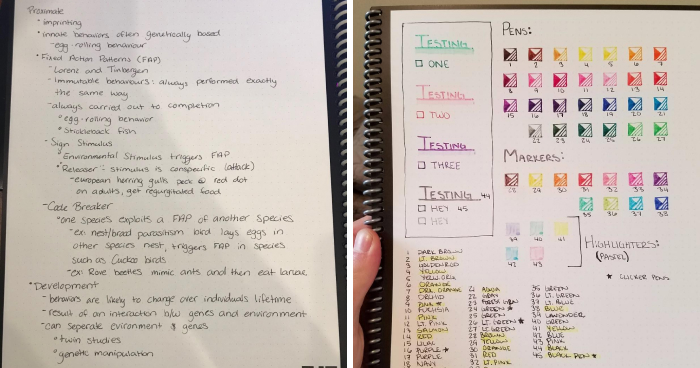 Proximate
• imprinting
• innate behaviors often genetically based
- egg-rolling behaviour
• Fixed Action Patterns (FAP)
- Lorenz and Tinbergen
- Immutable behaviours: always performed exactly
the same way
- always carried out to completion
• egg-rolling behavior
• Stickleback fish
- Sign Stimulus
• Environmental Stimulus triggers FAP
• Releaser - stimulus is conspecific (attack)
- european herring gulls peck @ red dot
on adults, get regurgitated food
- Code Breaker
• one species exploits a FAP of another species
- ex: nest/brood parasitism bird lays eggs in
other species nest, triggers FAP in species
such as Cuckoo birds
- ex: Rove beetles mimic ants and then eat larvae
• Development
- behaviors are likely to change over individuals lifetime
- result of an interaction b/w genes and environment
- can seperate evironment & genes
• twin studies
• genetic manipulation
TESTING
ONE
TESTING
TWO
TESTING
THREE
TESTING 44
HEY 45
HEY
PENS:
1 2 3 4 5 6 7
8 9 10 11 12 13 14
15 16 17 18 19 20 21
22 23 24 25 26 27
MARKERS:
28 29 30 31 32 33 34
35 36 37 38
39 40 41
42 43
HIGHLIGHTERS:
(PASTEL)
* CLICKER PENS
1 DARK BROWN
2 LT. BROWN
3 GOLDENROD
4 YELLOW
5 YELLW. ORG
6 ORANGE
7 DRK. ORANGE
8 ORCHID
9 PINK *
10 FUCHSIA
11 PINK
12 LT. PINK
13 SALMON
14 RED
15 LILAC
16 PURPLE *
17 PURPLE
18 NAVY
21 AQUA
22 GRAY
23
24 GREEN *
25 GREEN
26 LT. GREEN *
27 LT. GREEN
28 BROWN
29 YELLOW
30 ORANGE
31 RED
32 LT. PINK
35 GREEN
36 LT. GREEN
37 LT. BLUE
38 BLUE
39 LAVENDER
40 GREEN
41 YELLOW
42 BLUE
43 PINK
44 BLACK
45 BLACK PEN *